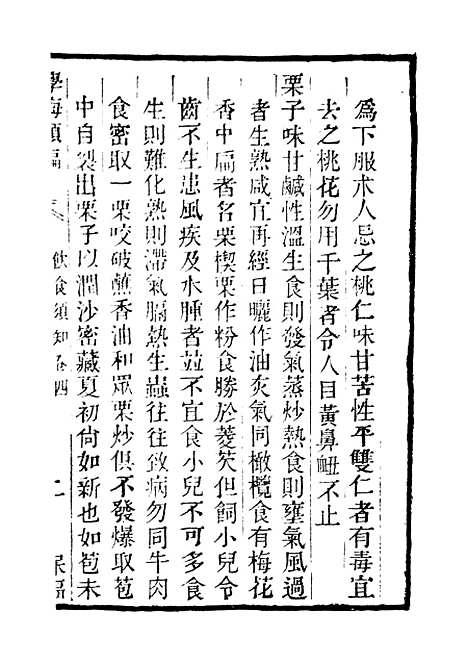 爲下服术人忌之桃仁味甘苦性平雙仁者有毒宜
去之桃花勿用千葉者令人目黃鼻衄不止
栗子味甘鹹性溫生食則發氣蒸炒熱食則壅氣風過
者生熟咸宜再經日曬作油灰氣同橄欖食有梅花
香中扁者名栗楔栗作粉食勝於菱芡但飼小兒令
齒不生患風疾及水腫者並不宜食小兒不可多食
生則難化熟則滯氣膈熱生蟲往往致病勿同牛肉
食密取一栗咬破蘸香油和眾栗炒俱不發爆取苞
中自裂出栗子以潤沙密藏夏初尙如新也如苞未
學海類編
飲食須知卷四
二